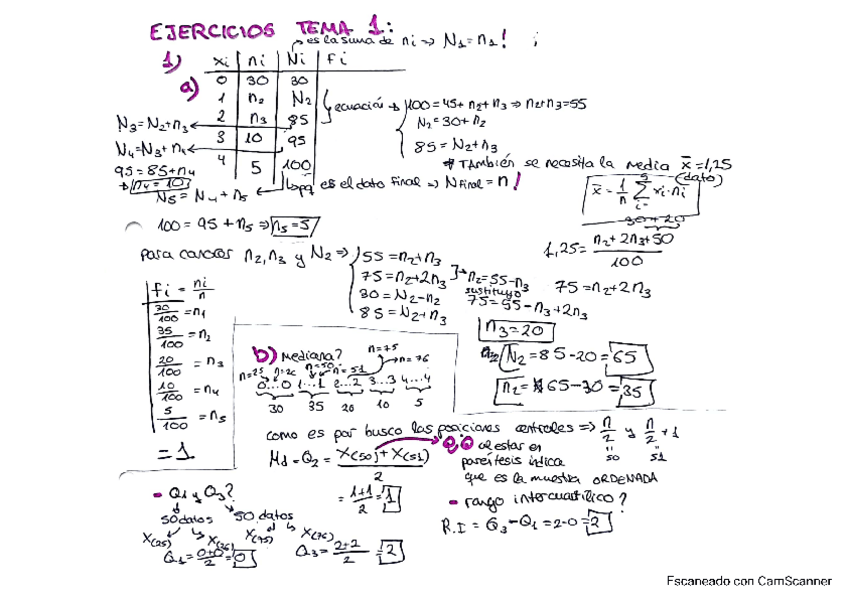 EJERCICIOS TEMA 1:
es la suma de ni ⇒ N₁ = n₁ !
1)
a)
xi | ni | Ni | fi
0 | 30 | 30
1 | n₂ | N₂
2 | n₃ | 85
3 | 10 | 95
4 | 5 | 100
N₃ = N₂ + n₃
N₄ = N₃ + n₄
95 = 85 + n₄
n₄ = 10
N₅ = N₄ + n₅
100 = 95 + n₅ ⇒ n₅ = 5
ecuación → 100 = 45 + n₂ + n₃ ⇒ n₂ + n₃ = 55
N₂ = 30 + n₂
85 = N₂ + n₃
* También se necesita la media x̄ = 1,25
(dato)
es el dato final ⇒ N Final = n !
x̄ = 1/n Σ xi · ni
30 + 20
1,25 = (n₂ + 2n₃ + 50) / 100
75 = n₂ + 2n₃
para conocer n₂, n₃ y N₂ ⇒
55 = n₂ + n₃
75 = n₂ + 2n₃
30 = N₂ - n₂
85 = N₂ + n₃
n₂ = 55 - n₃
sustituyo
75 = 55 - n₃ + 2n₃
n₃ = 20
N₂ = 85 - 20 = 65
n₂ = 65 - 30 = 35
fi = ni/n
30/100 = n₁
35/100 = n₂
20/100 = n₃
10/100 = n₄
5/100 = n₅
= 1
b) Mediana?
n=25 n=26 n=50 n=51 n=75 n=76
0...0 1...1 2...2 3...3 4...4
30 35 20 10 5
como es par busco las posiciones centrales ⇒ n/2 y n/2 + 1
50 51
Md = Q₂ = (X(50) + X(51)) / 2
= (1+1)/2 = 1
al estar en
paréntesis indica
que es la muestra ORDENADA
- Q₁ y Q₃?
50 datos 50 datos
X(25) X(26) X(75) X(76)
Q₁ = (0+0)/2 = 0
Q₃ = (2+2)/2 = 2
- rango intercuartílico?
R.I = Q₃ - Q₁ = 2 - 0 = 2
Escaneado con CamScanner